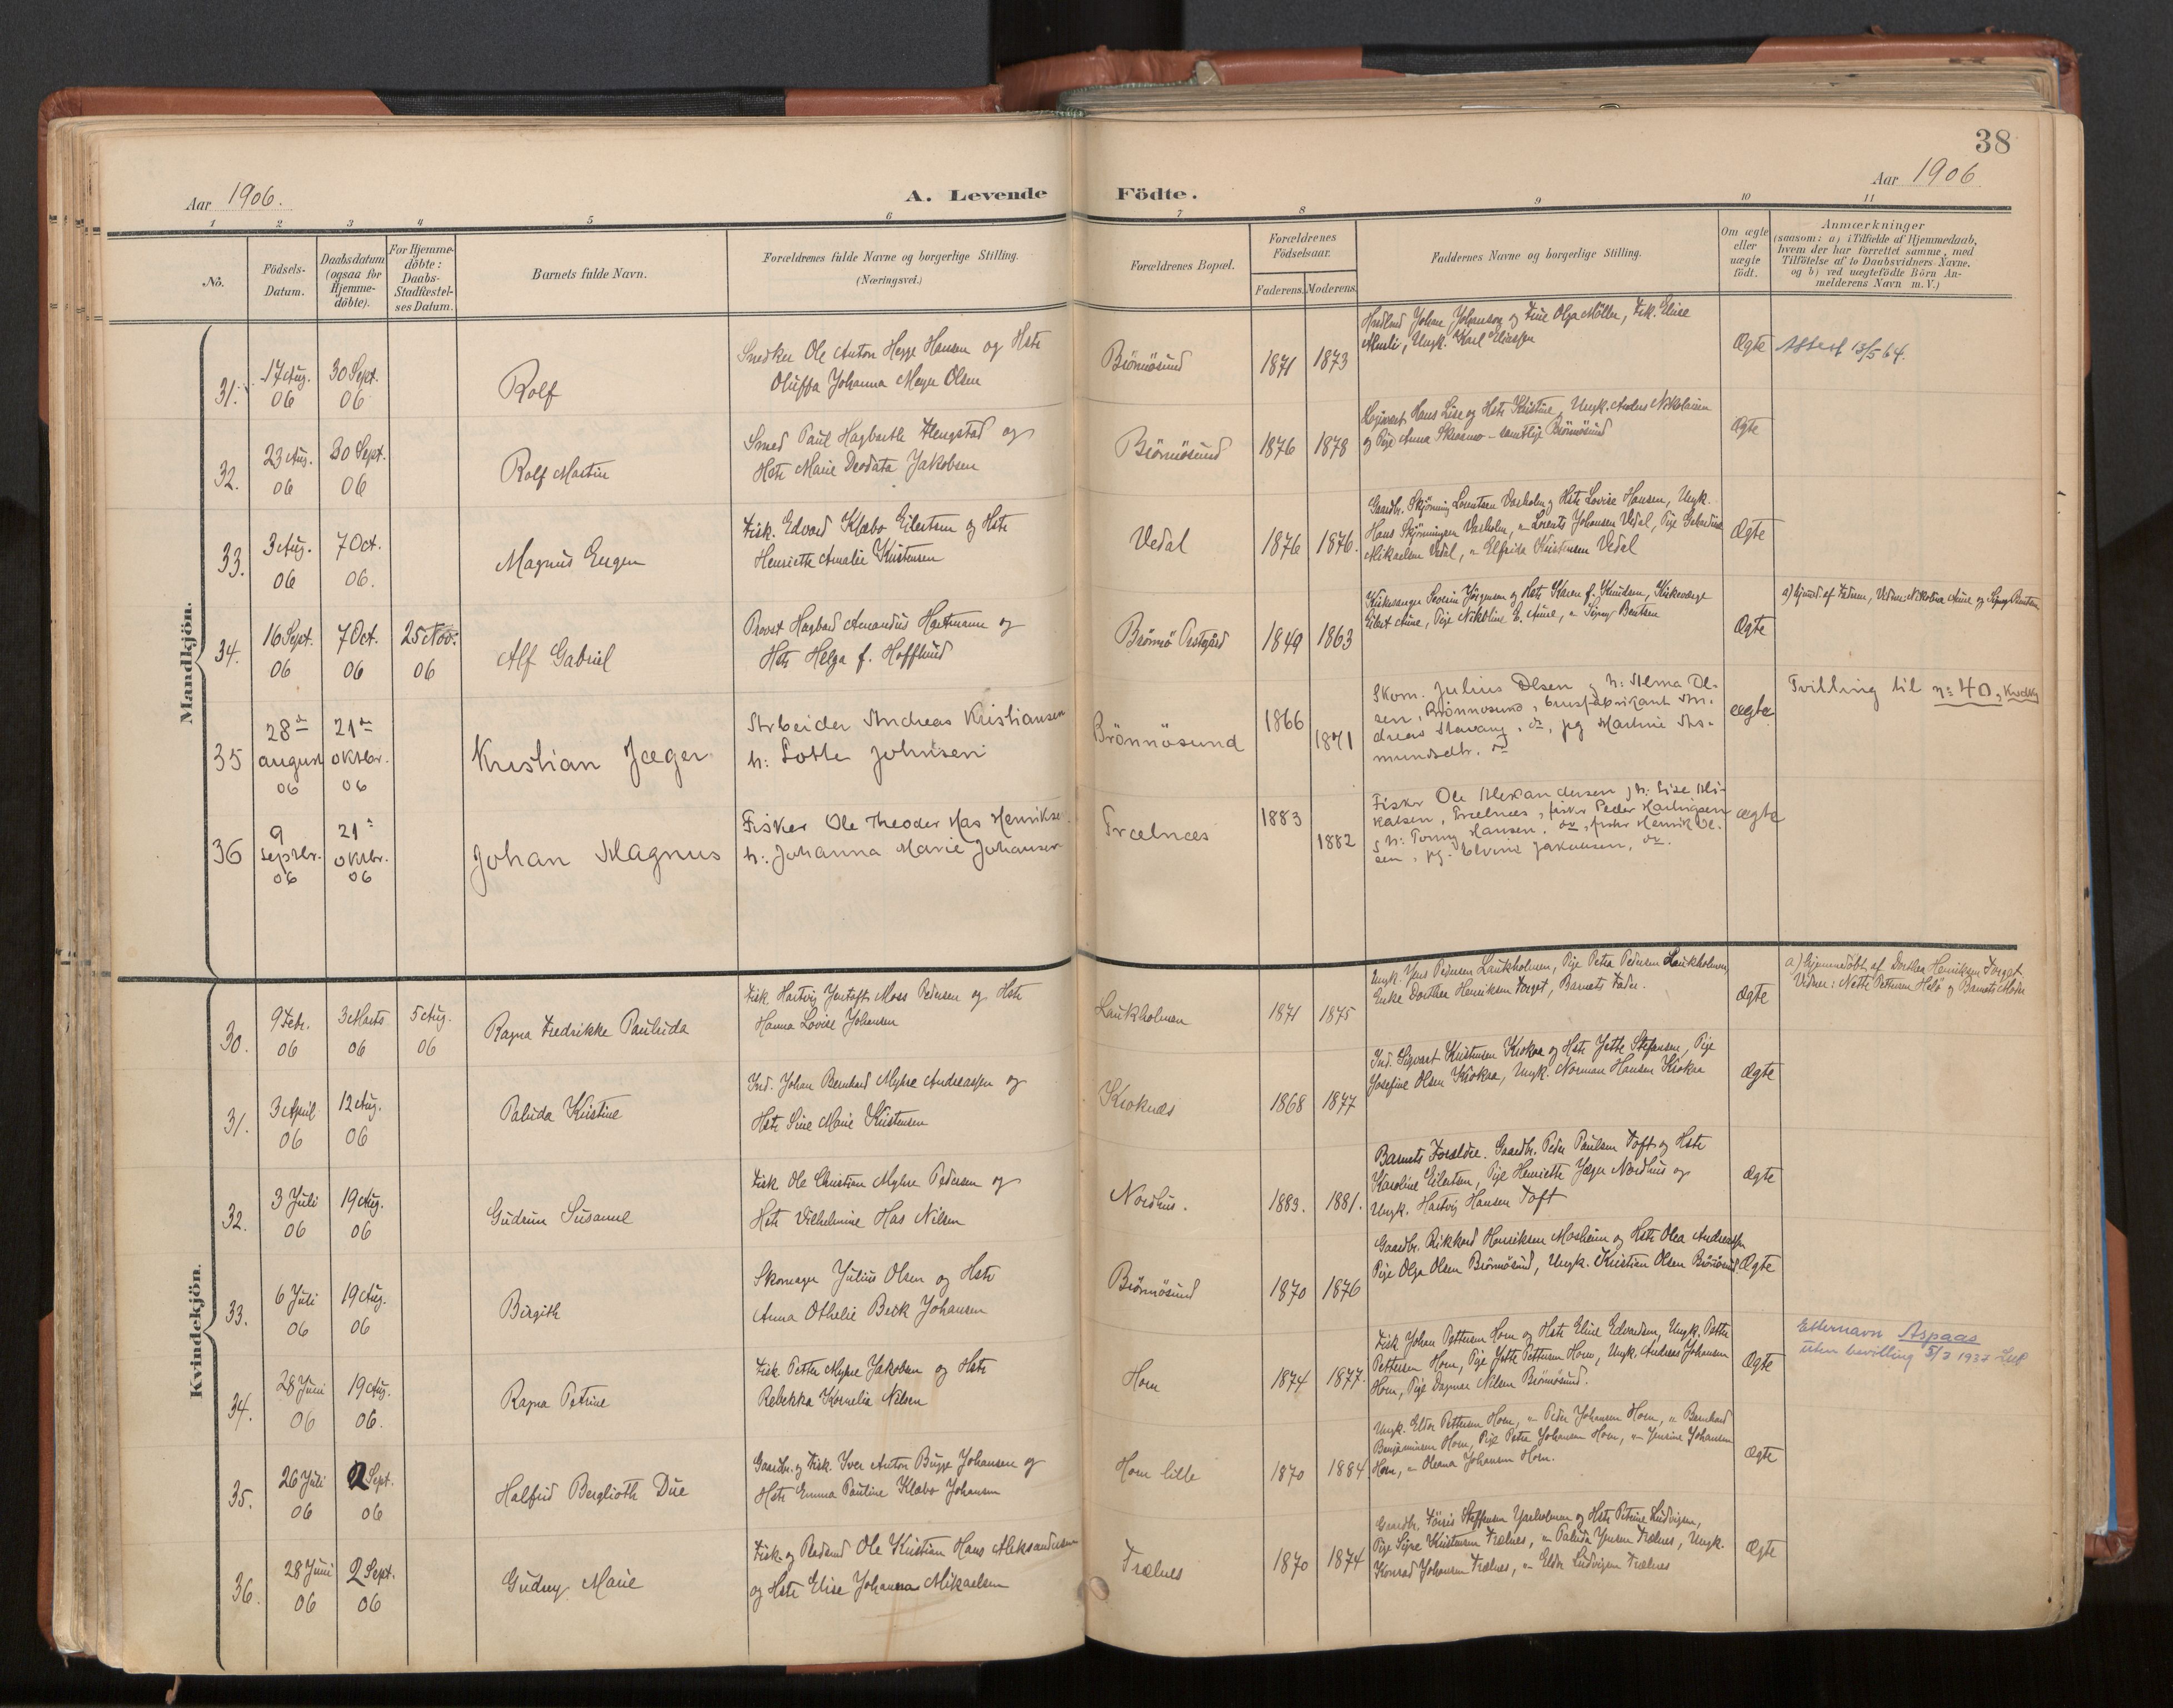 38
Aar 1906.
A. Levende
Födte.
Aar 1906
1 2 3 4 5 6 7 8 9 10 11
No.
Födsels-
Datum.
Daabsdatum
(ogsaa for
Hjemme-
döbte).
For Hjemme-
döbte:
Daabs-
Stadfæstel-
ses Datum.
Barnets fulde Navn.
Forældrenes fulde Navne og borgerlige Stilling.
(Næringsvei.)
Forældrenes Bopæl.
Forældrenes
Födselsaar.
Faderens. Moderens.
Faddernes Navne og borgerlige Stilling.
Om ægte
eller
uægte
födt.
Anmærkninger
(saasom: a) i Tilfælde af Hjemmedaab,
hvem der har forrettet samme, med
Tilföielse af to Daabsvidners Navne.
og b) ved uægtefödte Börn An-
melderens Navn m. V.)
Mandkjön.
31. 17 Aug. 06 30 Sept. 06 Rolf
Snedker Ole Anton Hegge Hansen og Hstr
Oluffa Johanna Meyer Olsen
Brönnösund 1871 1873
Johan Johanson og Frue Olga Möller, Frk. Elise
Ungk. Karl Eliassen
Ægte
Attest 13/5 64.
32. 23 Aug. 06 30 Sept. 06 Rolf Martin
Smed Paul Hagbarth Hengstad og
Hstr Marie Deodata Jakobsen
Brönnösund 1876 1878
Hans Lise og Hstr Kristine, Ungk. Anders Nikolaisen
og Pige Anna Skroamo - samtlige Brönnösund
Ægte
33. 3 Aug. 06 7 Oct. 06. Magnus Eugen
Fisk. Edvard Klæbo Eilertsen og Hstr
Henriette Amalie Kristensen
Vedal 1876 1876.
Gaardbr. Skjönning Lorentsen og Hstr Lovise Hansen, Ungk.
Hans Skjönningsen, " Lorents Johansen Vedal, Pige
Mikaelsen Vedal, " Elfrida Kristensen Vedal
Ægte
34. 16 Sept. 06 7 Oct. 06 25 Nov. 06 Alf Gabriel
Provst Hagbard Amandus Hartmann og
Hstr Helga f. Hofflund
Brönnö Prestgård 1849 1863
Kirkesanger Severin Jörgensen og Hstr Karen f. Knudsen, Kirkeværge
Eilert Aune, Pige Nikoline E. Aune, " Signy Bentsen
Ægte
a) hjemd. af Faderen, Vidner: Nikoline Aune og Signy Bentsen
35 28de august 06 21de oktbr. 06 Kristian Jæger
Arbeider Andreas Kristiansen
h: Lotte Johnsen
Brönnösund 1866 1871
Skom. Julius Olsen, h: Alma Ol-
sen, Brönnösund, brusfabrikant An-
dreas Stavang, do, pg Martine As-
mundsdtr. do
ægte
Tvilling til no 40, Kvdkj
36 9 septbr. 06 21de oktbr. 06 Johan Magnus
Fisker Ole Theodor Has Henriksen
h: Johanna Marie Johansen
Trælnæs 1883 1882
Fisker Ole Alexandersen, h: Lise Mi-
kalsen, Trælnæs, fisker Peder Hartvigsen
, h: Tomy Hansen, do, fisker Henrik Ol-
sen, pg. Elvine Jakobsen, do.
ægte
Kvindekjön.
30. 9 Febr. 06 3 Marts 06 5 Aug. 06 Ragna Fredrikke Paulida
Fisk. Hartvig Moss Pedersen og Hstr
Hanna Lovise Johansen
Laukholmen 1871 1875
Ungk. Jens Pedersen Laukholmen, Pige Petra Pedersen Laukholmen,
Enke Dorthea Henriksen Torget, Barnets Fader.
Ægte
a) hjemmedöbt af Dorthea Henriksen Torget.
Vidner: Nette Pettersen Helö og Barnets Moder
31. 3 April 06 12 Aug. 06 Palida Kristine
Ind. Johan Bernhard Myhre Andreassen og
Hstr Sine Marie Kristensen
Kroknæs 1868 1877
Ind. Sigvart Kristensen Krokaa og Hstr Jette Stefansen, Pige
Josefine Olsen Krokaa, Ungk. Norman Hansen Krokaa
Ægte
32. 3 Juli 06 19 Aug. 06 Gudrun Susanne
Fisk. Ole Christian Myhre Pedersen og
Hstr Vilhelmine Has Nilsen
Nordhus. 1883. 1881.
Barnets Forældre. Gaardbr. Peder Paulsen Toft og Hstr
Karoline Eilertsen, Pige Henriette Jæger Nordhus og
Ungk. Hartvig Hansen Toft
Ægte
33. 6 Juli 06 19 Aug. 06 Birgith
Skomager Julius Olsen og Hstr
Anna Othelie Beck Johansen
Brönnösund 1870 1876
Gaardbr. Rikkard Henriksen Mosheim og Hstr Olea Andreassen
Pige Olga Olsen Brönnösund, Ungk. Kristian Olsen Brönnösund.
Ægte
34. 28 Juni 06 19 Aug. 06. Ragna Petrine
Fisk. Petter Myhre Jakobsen og Hstr
Rebekka Kornelia Nilsen
Horn 1874 1877.
Fisk. Johan Pettersen Horn og Hstr Eline Edvardsen, Ungk. Petter
Pettersen Horn, Pige Jette Pettersen Horn, Ungk. Anders Johansen
Horn, Pige Dagmar Nilsen Brönnösund.
Ægte
Etternavn Aspaas
uten bevilling 5/3 1937
35. 26 Juli 06 2 Sept. 06 Halfrid Berglioth Due
Gaardbr. og Fisk. Iver Anton Bugge Johansen og
Hstr Emma Pauline Klæbo Johansen
Horn lille 1870 1884
Ungk. Eldor Pettersen Horn, " Peder Johansen Horn, " Bernhard
Benjaminsen Horn, Pige Petra Johansen Horn, " Jensine Johansen
Horn, " Oleana Johansen Horn.
Ægte
36. 28 Juni 06 2 Sept. 06 Gudny Marie
Fisk. og Ole Kristian Hans Aleksandersen
og Hstr Elise Johanna Mikaelsen
Trælnes 1870 1874
Gaardbr. Steffensen og Hstr Petrine Ludvigsen,
Pige Signe Kristensen Trælnes, " Palida Jensen Trælnes, Ungk.
Konrad Johansen Trælnes, " Eldor Ludvigsen Trælnes
Ægte